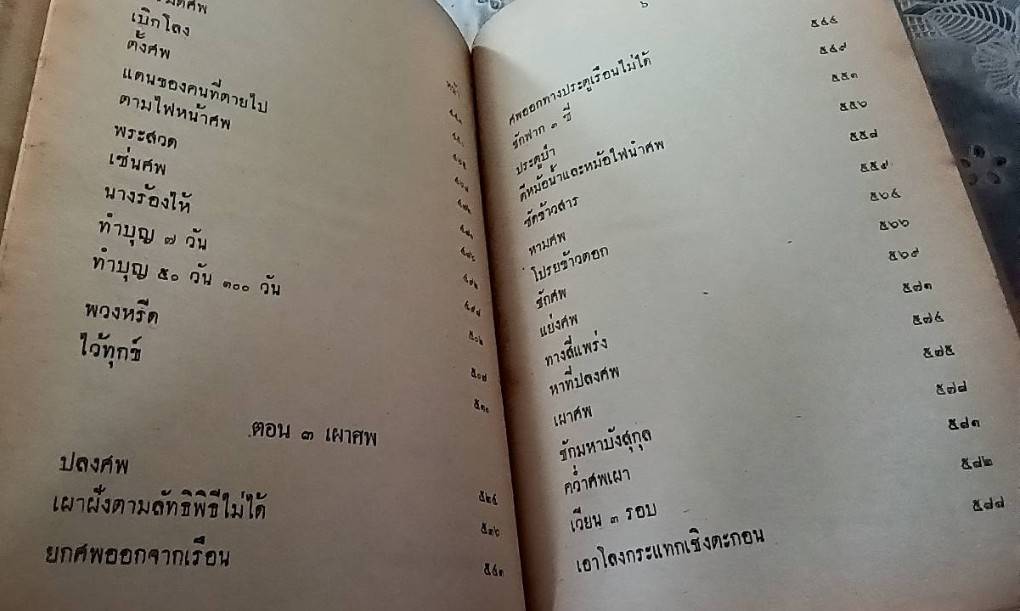 เบิกโลง
ตั้งศพ
หน้า
แดนของคนที่ตายไป
ตามไฟหน้าศพ
พระสวด
เซ่นศพ
นางร้องไห้
ทำบุญ ๗ วัน
ทำบุญ ๕๐ วัน ๑๐๐ วัน ๕๐๒
พวงหรีด ๕๐๗
ไว้ทุกข์ ๕๑๐
ตอน ๓ เผาศพ
ปลงศพ ๕๒๔
เผาผีตามลัทธิพิธีไม่ได้ ๕๓๖
ยกศพออกจากเรือน ๕๔๑
๖
ศพออกทางประตูเรือนไม่ได้ ๕๔๔
ชักฟาก ๓ ซี่ ๕๔๙
ประตูป่า ๕๕๑
ตีหม้อน้ำและหม้อไฟนำศพ ๕๕๖
ซัดข้าวสาร ๕๕๗
หามศพ ๕๕๙
โปรยข้าวตอก ๕๖๔
ชักศพ ๕๖๖
แย่งศพ ๕๖๙
ทางสี่แพร่ง ๕๗๑
หาที่ปลงศพ ๕๗๔
เผาศพ ๕๗๕
ชักมหาบังสุกุล ๕๗๗
คว่ำศพเผา ๕๘๑
เวียน ๓ รอบ ๕๘๒
เอาโลงกระแทกเชิงตะกอน ๕๘๘